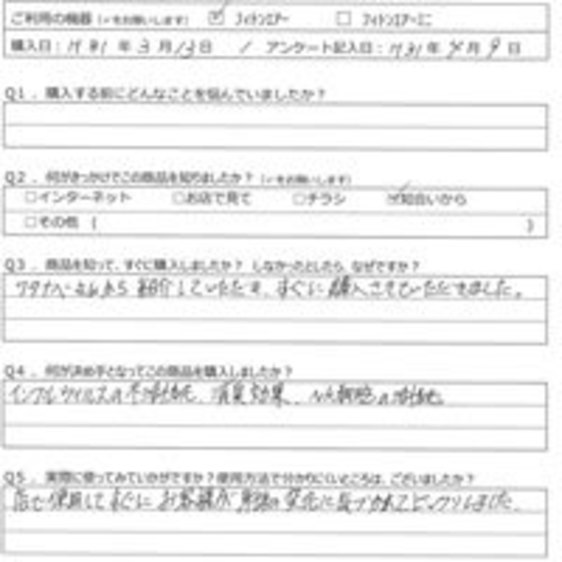 ご利用の機器（✓をお願いします） ☑ フィトンエアー □ フィトンエアーミニ
購入日：H31年3月13日 / アンケート記入日：H31年4月9日
Q1．購入する前にどんなことを悩んでいましたか？
Q2．何がきっかけでこの商品を知りましたか？（✓をお願いします）
□インターネット □お店で見て □チラシ ☑知合いから
□その他（ ）
Q3．商品を知って、すぐに購入しましたか？ しなかったとしたら、なぜですか？
紹介していただき、すぐに購入させていただきました。
Q4．何が決め手となってこの商品を購入しましたか？
インフルウイルスの不活性化、消臭効果、NK細胞の活性化
Q5．実際に使ってみていかがですか？使用方法で分かりにくいところは、ございましたか？
店で使用してすぐにお客様が の変化に気づかれてビックリしました。